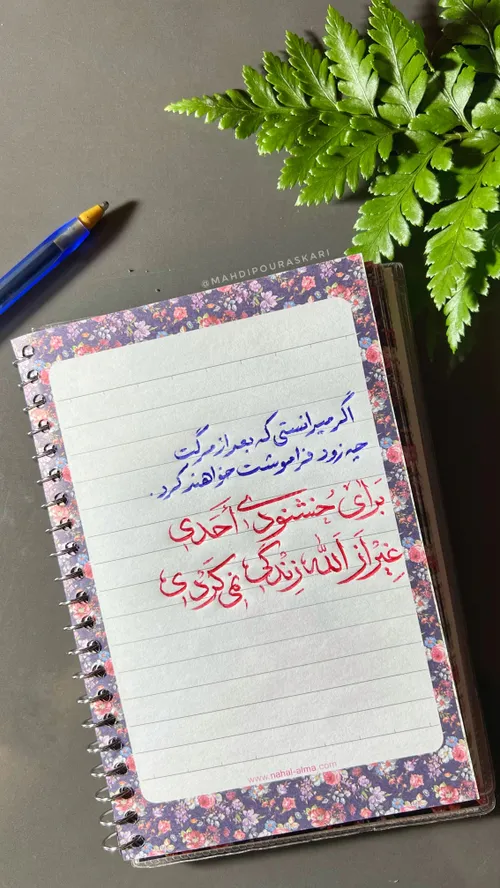 @MAHDIPOURASKARI
اگر میدانستی که بعد از مرگت
چه زود فراموشت خواهند کرد.
بَرایِ خُشنودیِ أحَدی
غِیْر اَز اَللّٰه زِنْدِگی نِمی کَرْدی
www.nahal-alma.com